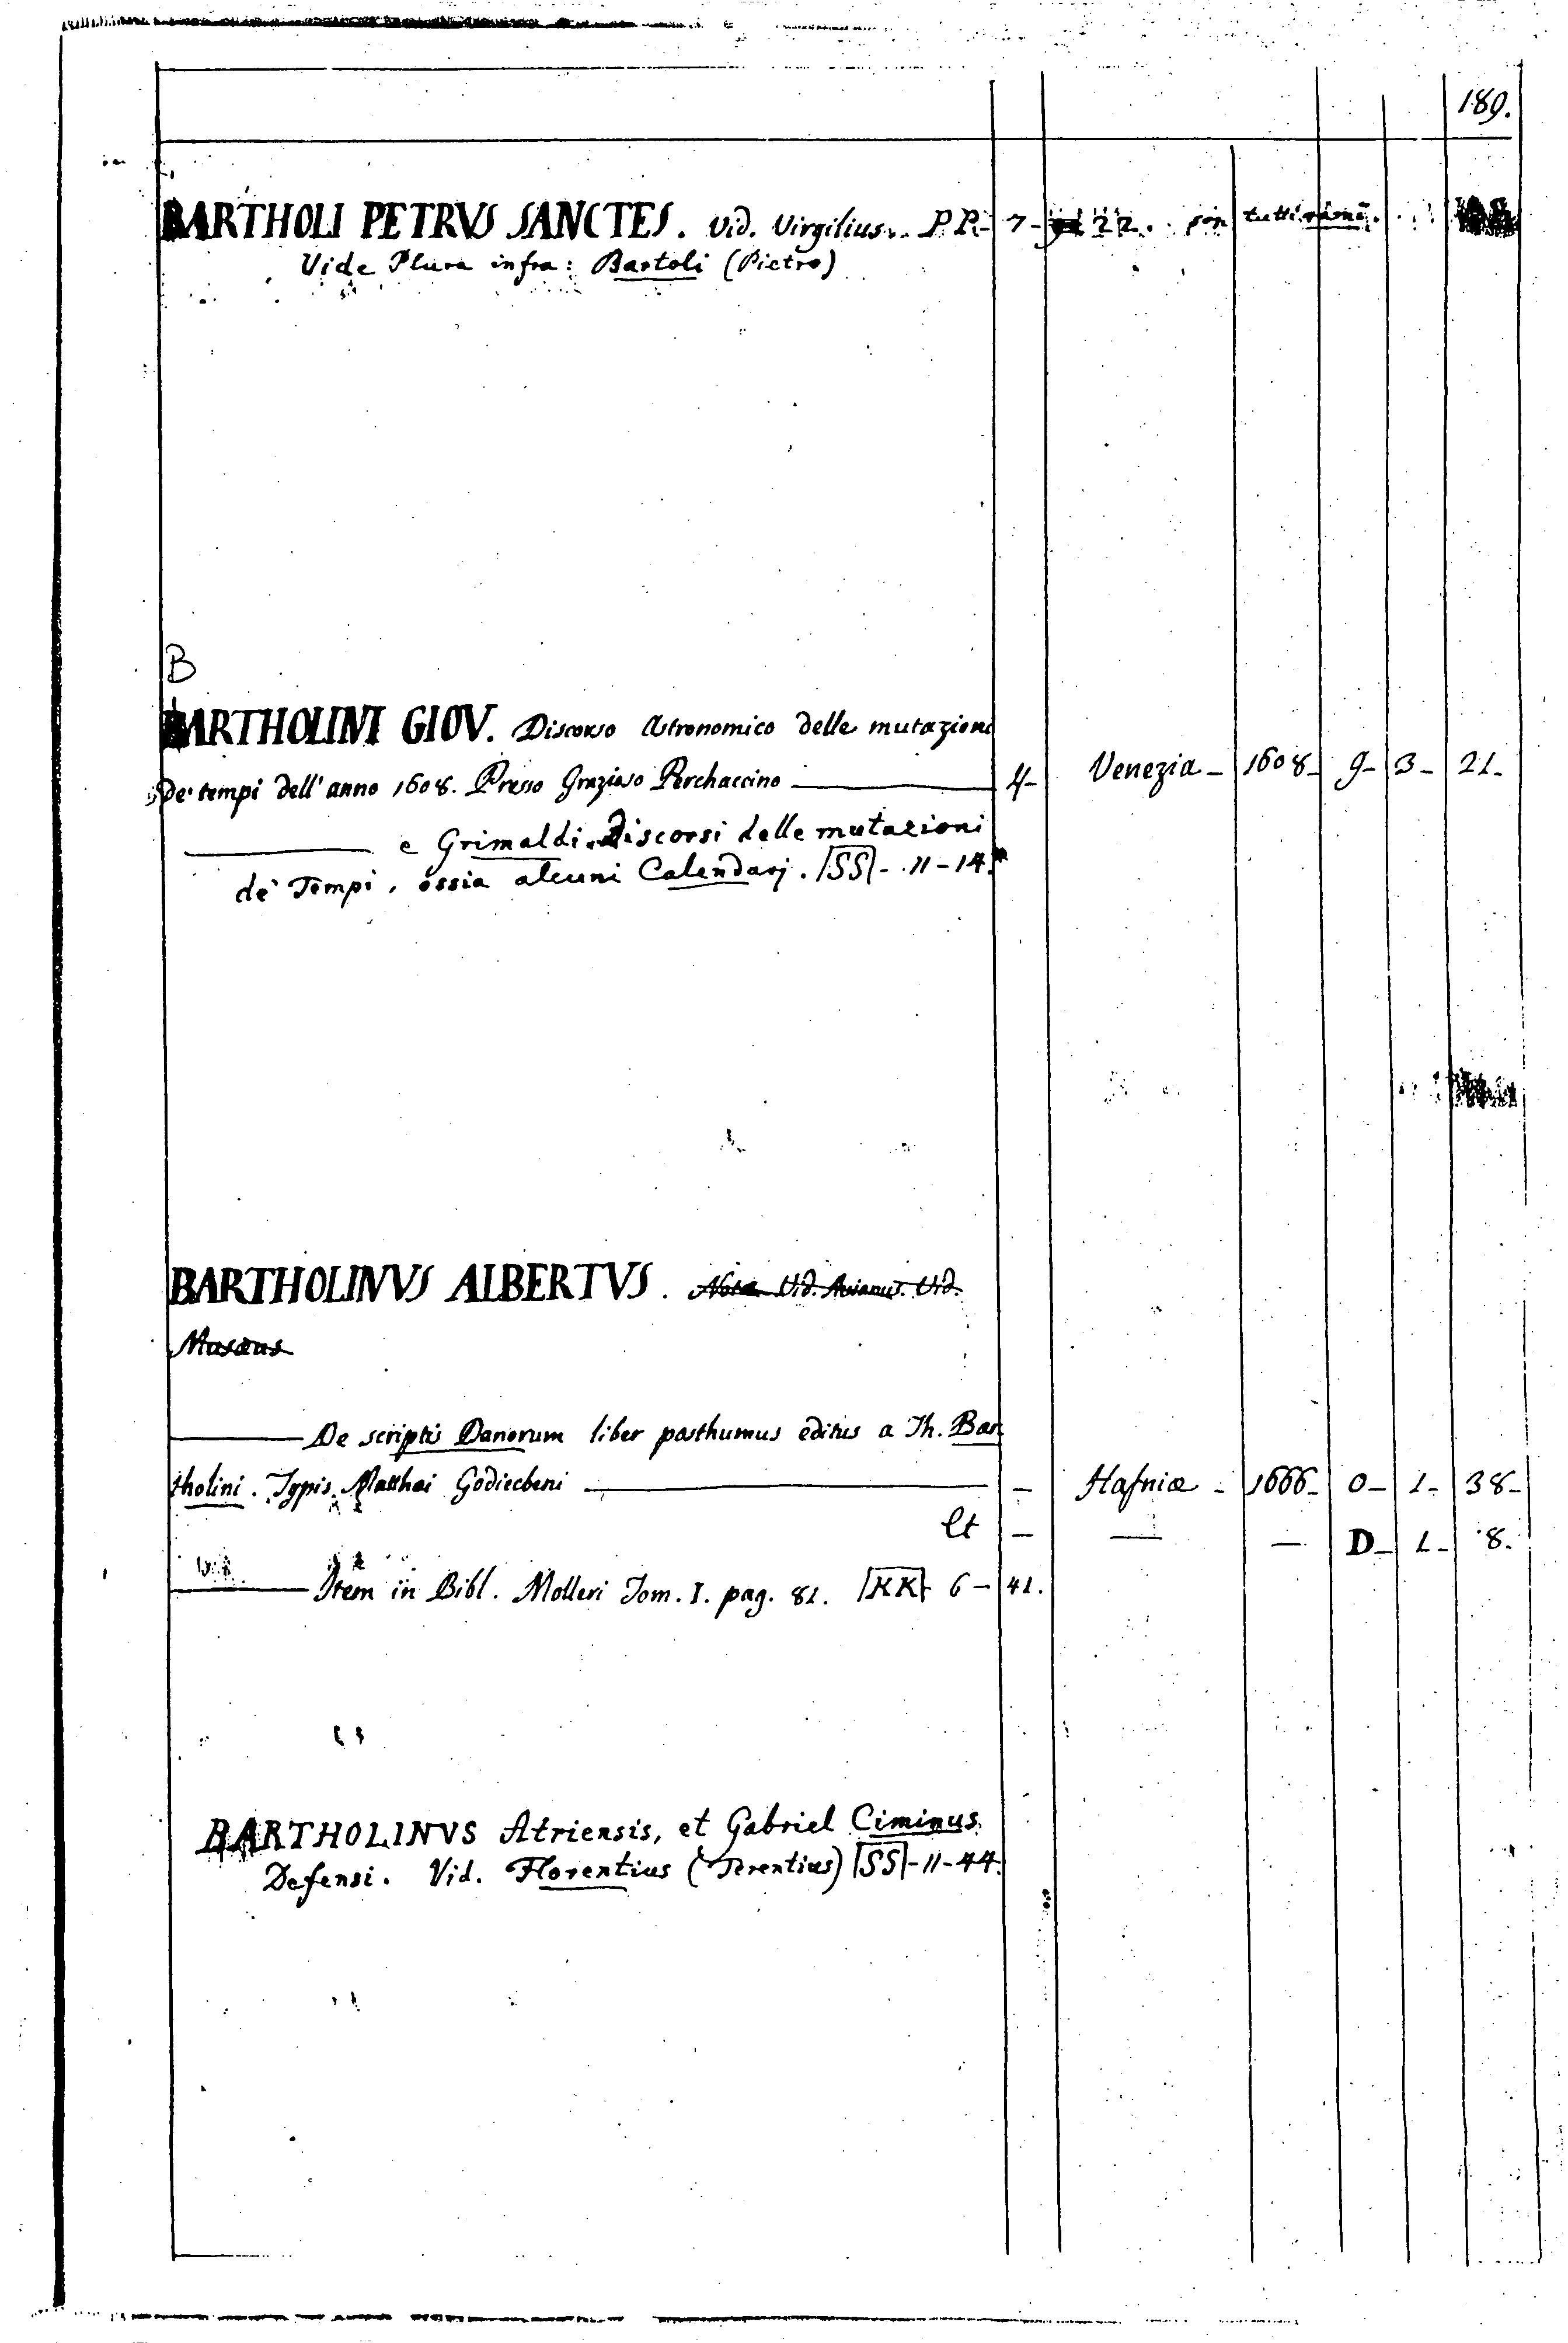 189.
BARTHOLI PETRVS SANCTES. Vid. Virgilius. PP. - 7 - 22. son tutti rami.
Vide Plura infra: Bartoli (Pietro)
B
BARTHOLINI GIOV. Discorso Astronomico delle mutazioni
de' tempi dell' anno 1608. Presso Grazioso Perchaccino — 4- Venezia - 1608- 9- 3- 21-
— e Grimaldi. Discorsi delle mutazioni
de' Tempi, ossia alcuni Calendarj. SS - 11 - 14.
BARTHOLINVS ALBERTVS. Notæ Vid. Avianus. Vid.
Musæus
— De scriptis Danorum liber posthumus editus a Th. Bar
tholini. Typis Matthæi Godiecheni — - Hafniæ - 1666- O- 1- 38-
et — — — D- 1- 8.
— Item in Bibl. Molleri Tom. I. pag. 81. KK - 6 - 41.
BARTHOLINVS Atriensis, et Gabriel Ciminus
Defensi. Vid. Florentius (Terentius) SS - 11 - 44.